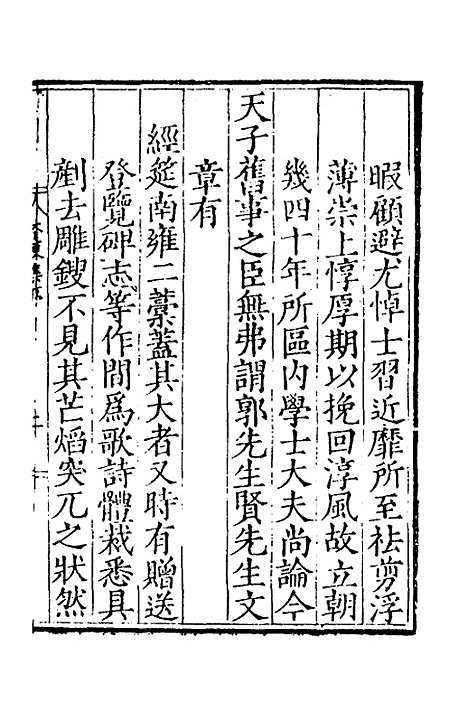 暇顧避尤悼士習近靡所至袪剪浮
薄崇上惇厚期以挽回淳風故立朝
幾四十年所區內學士大夫尚論今
天子舊事之臣無弗謂郭先生賢先生文
章有
經筵南雍二藁蓋其大者又時有贈送
登覽碑志等作間爲歌詩體裁悉具
剷去雕鎪不見其芒熖突兀之狀然